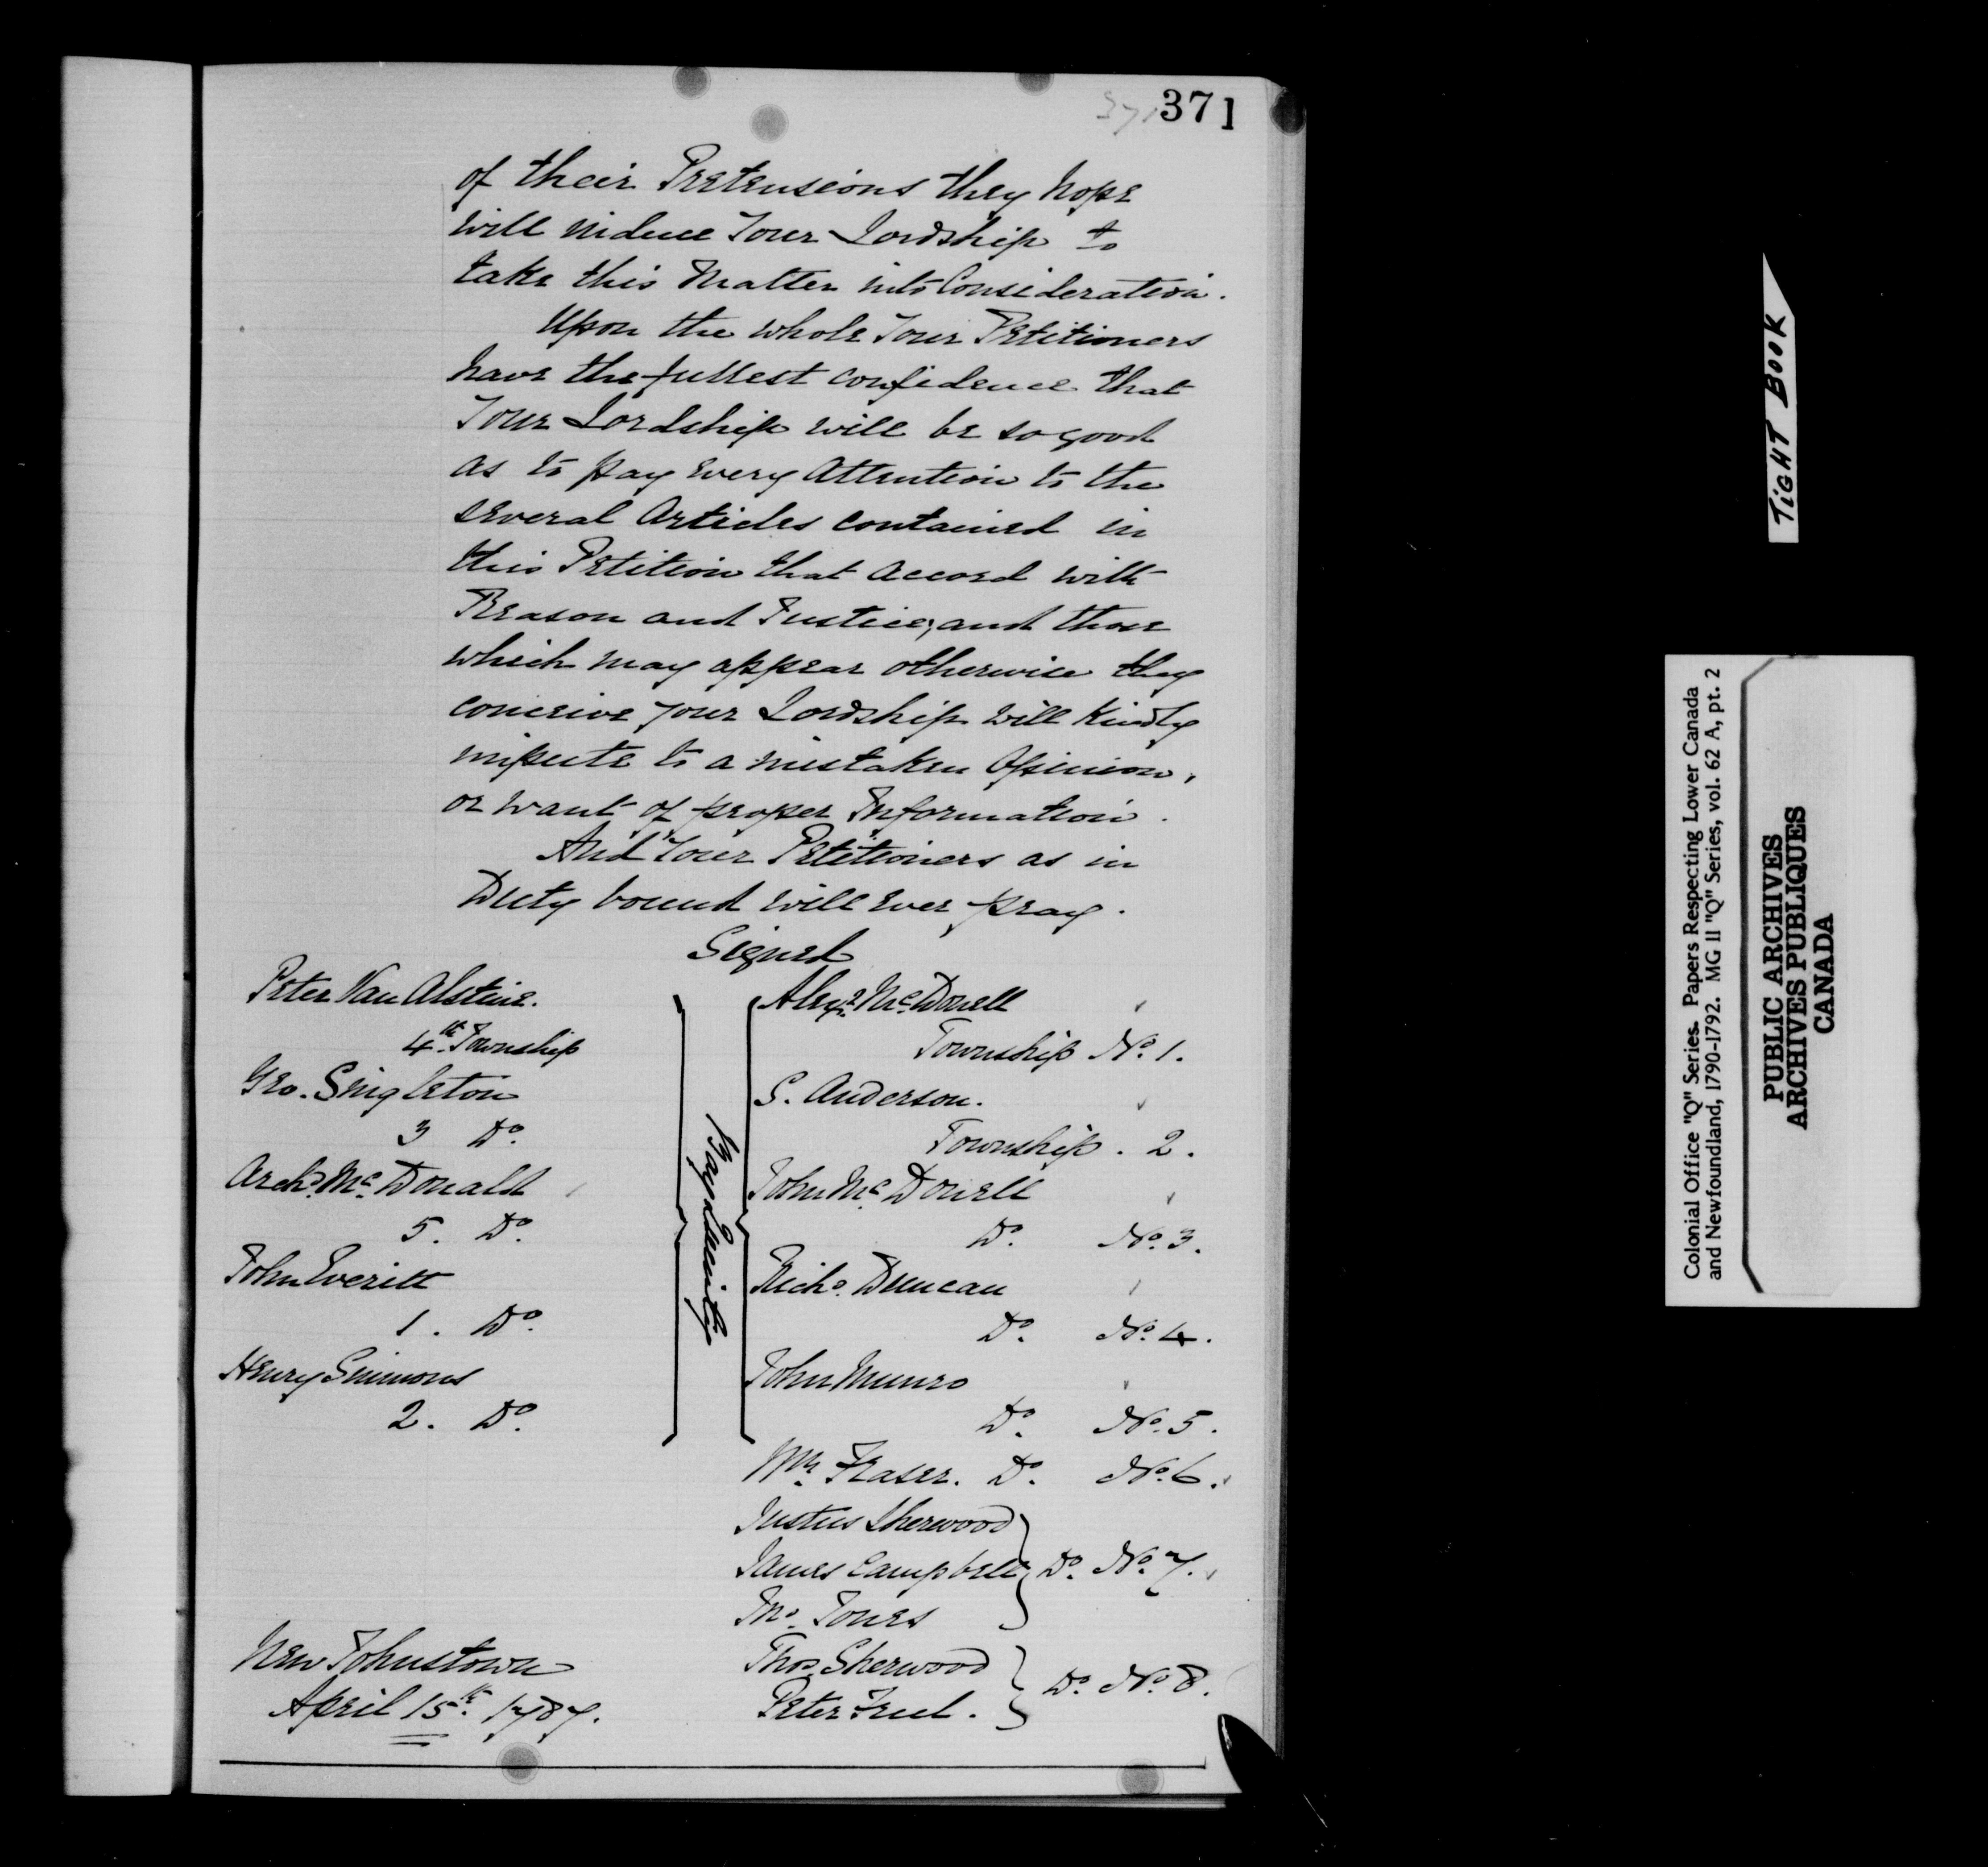 371 371
of their Pretensions they hope
will induce Your Lordship to
take this Matter into Consideration.
Upon the whole Your Petitioners
have the fullest confidence that
Your Lordship will be so good
as to pay every Attention to the
several Articles contained in
this Petition that accord with
Reason and Justice, and those
which may appear otherwise they
conceive your Lordship will kindly
impute to a mistaken Opinion,
or want of proper Information.
And Your Petitioners as in
Duty bound will ever pray.
Signed
Peter Van Alstine.
4th Township
Geo. Singleton
3 Do.
Archd. McDonald
5. Do.
John Everitt
1. Do.
Henry Simmons
2. Do.
Bay Quinty
Alexr. McDonell
Township No. 1.
S. Anderson.
Township . 2.
John McDonell
Do. No. 3.
Richd. Duncan
Do. No. 4.
John Munro
Do. No. 5.
Wm. Fraser. Do. No. 6.
Justus Sherwood
James Campbell Do. No. 7.
Jno. Jones
Thos. Sherwood
Peter Freel. Do. No. 8.
New Johnstown
April 15th. 1787.
TIGHT BOOK
Colonial Office "Q" Series. Papers Respecting Lower Canada
and Newfoundland, 1790-1792. MG 11 "Q" Series, vol. 62 A, pt. 2
PUBLIC ARCHIVES
ARCHIVES PUBLIQUES
CANADA